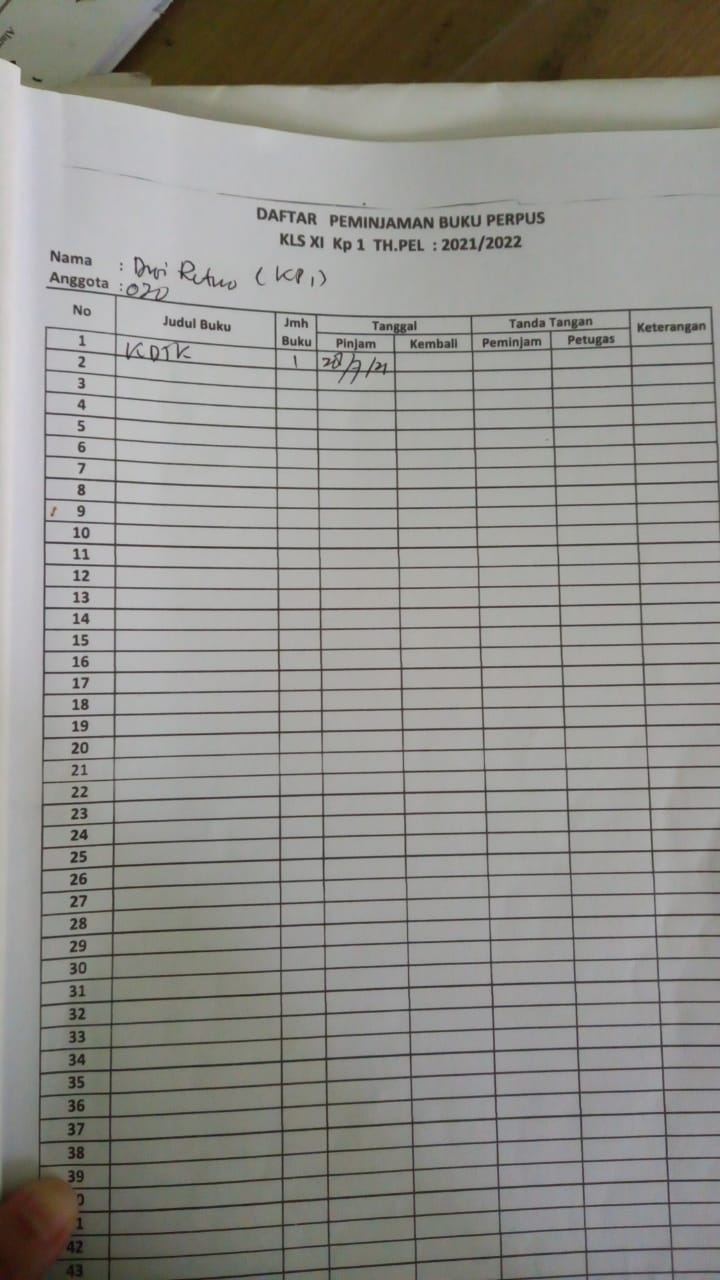 DAFTAR PEMINJAMAN BUKU PERPUS
KLS XI Kp 1 TH.PEL : 2021/2022
Nama : Dwi Retno (KP1)
Anggota : 020
No Judul Buku Jmh Buku Tanggal Tanda Tangan Keterangan
Pinjam Kembali Peminjam Petugas
1 KDTK 1 28/7/21
2
3
4
5
6
7
8
9
10
11
12
13
14
15
16
17
18
19
20
21
22
23
24
25
26
27
28
29
30
31
32
33
34
35
36
37
38
39
0
1
42
43